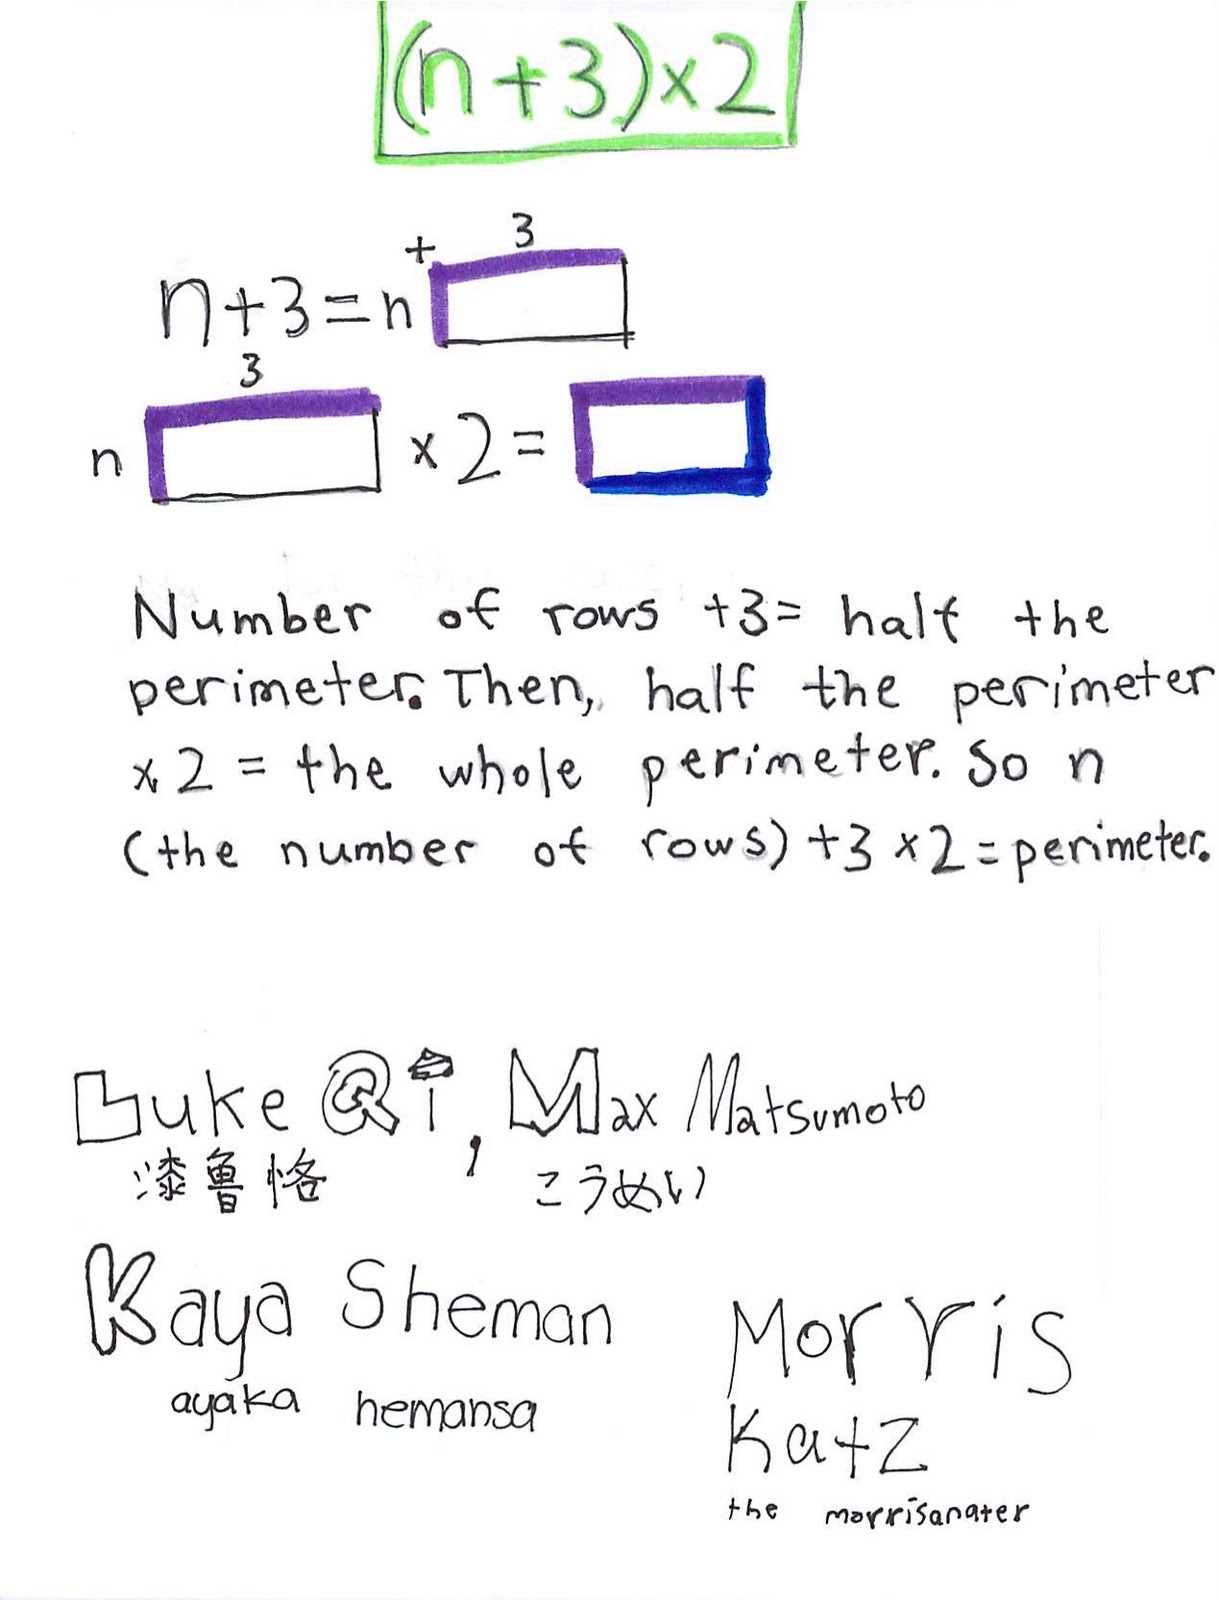 (n+3)×2
+ 3
n+3=n
3
n ×2=
Number of rows +3= half the
perimeter. Then, half the perimeter
×2 = the whole perimeter. So n
(the number of rows) +3 ×2=perimeter.
Luke Qi, Max Matsumoto
漆魯恪 こうめい
Kaya Sheman
ayaka hemansa
Morris
Katz
the morrisanater